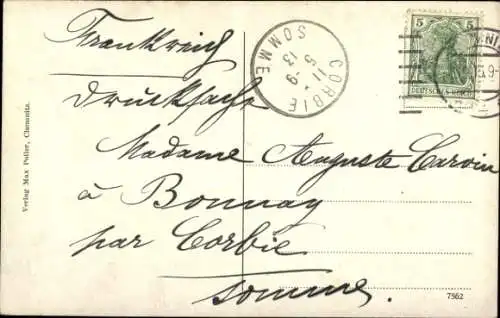 Frankreich
Drucksache
Madame Auguste Carvin
à Bonnay
par Corbie
Somme.
CORBIE
11 - 9
5 13
SOMME
5 5
DEUTSCHES REICH
Verlag Max Poller, Chemnitz.
7562